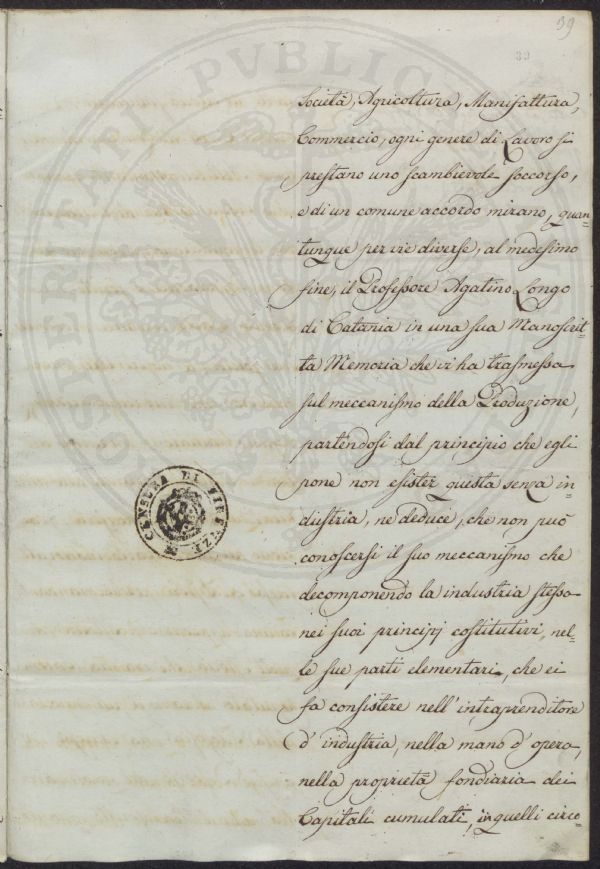 39
39
Società, Agricoltura, Manifattura,
Commercio, ogni genere di Lavoro si
prestano uno scambievole soccorso,
e di un comune accordo mirano, quan-
tunque per vie diverse, al medesimo
fine, il Professore Agatino Longo
di Catania in una sua Manoscrit-
ta Memoria che vi ha trasmessa
sul meccanismo della Produzione,
partendosi dal principio che egli
pone non esister questa senza in-
dustria, ne deduce, che non può
conoscersi il suo meccanismo che
decomponendo la industria stessa
nei suoi principj costitutivi, nel-
le sue parti elementari, che ei
fa consistere nell'intraprenditore
d'industria, nella mano d'opera,
nella proprietà fondiaria dei
Capitali cumulati, in quelli circo-
CENSURA DI FIRENZE
PROSPERITATI PUBLICAE